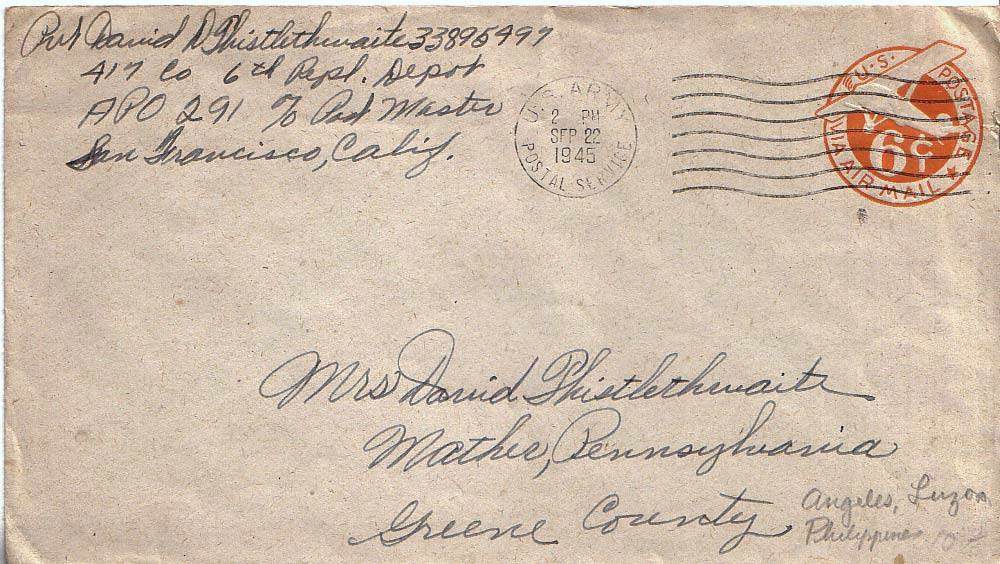 Pvt David D Thistlethwaite 33895497
417 Co 6th Repl. Depot
APO 291 % Post Master
San Francisco, Calif.
U.S. ARMY
2 PM
SEP 22
1945
POSTAL SERVICE
U.S. POSTAGE
6¢
VIA AIR MAIL
Mrs David Thistlethwaite
Mather, Pennsylvania
Greene County
Angeles, Luzon
Philippines